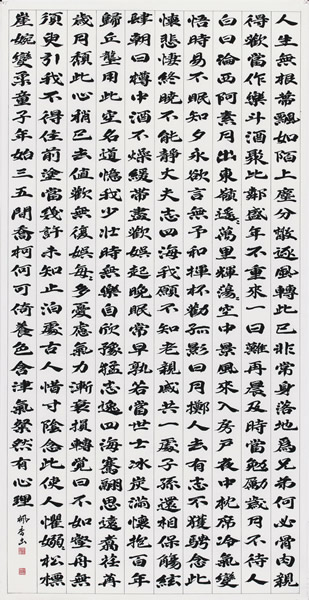 人生無根蒂飄如陌上塵分散逐風轉此已非常身落地為兄弟何必骨肉親
得歡當作樂斗酒聚比鄰盛年不重來一日難再晨及時當勉勵歲月不待人
白日淪西阿素月出東嶺遙〻萬里輝蕩〻空中景風來入房戶夜中枕席冷氣變
悟時易不眠知夕永欲言無予和揮杯勸孤影日月擲人去有志不獲騁念此
懷悲悽終曉不能靜丈夫志四海我願不知老親戚共一處子孫還相保觴絃
肆朝日樽中酒不燥緩帶盡歡娛起晚眠常早孰若當世士冰炭滿懷抱百年
歸丘壟用此空名道憶我少壯時無樂自欣豫猛志逸四海騫翮思遠翥荏苒
歲月頹此心稍已去值歡無復娛每〻多憂慮氣力漸衰損轉覺日不如壑舟無
須臾引我不得住前塗當幾許未知止泊處古人惜寸陰念此使人懼嫋〻松標
崖婉孌柔童子年始三五間喬柯何可倚養色含津氣粲然有心理